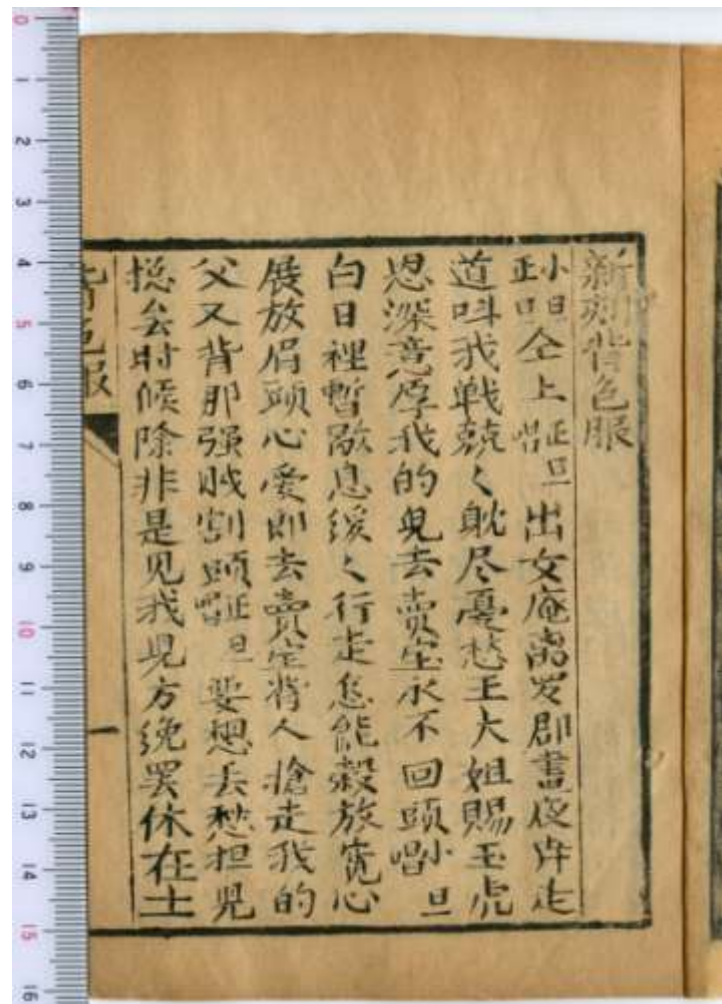 新刻背色服
小旦正旦仝上正旦唱出女庵离罗郡晝夜奔走
道呌我戰兢〻躭尽憂愁王大姐賜玉虎
恩深意厚我的児去賣宝永不回頭小旦唱
白日裡暫歇息缓〻行走怎能彀放寛心
展放眉頭心愛即去賣宝将人搶走我的
父又背那强贼割頭正旦唱要想丢愁担児
捴会时候除非是见我児方纔罢休在土
背色服
一